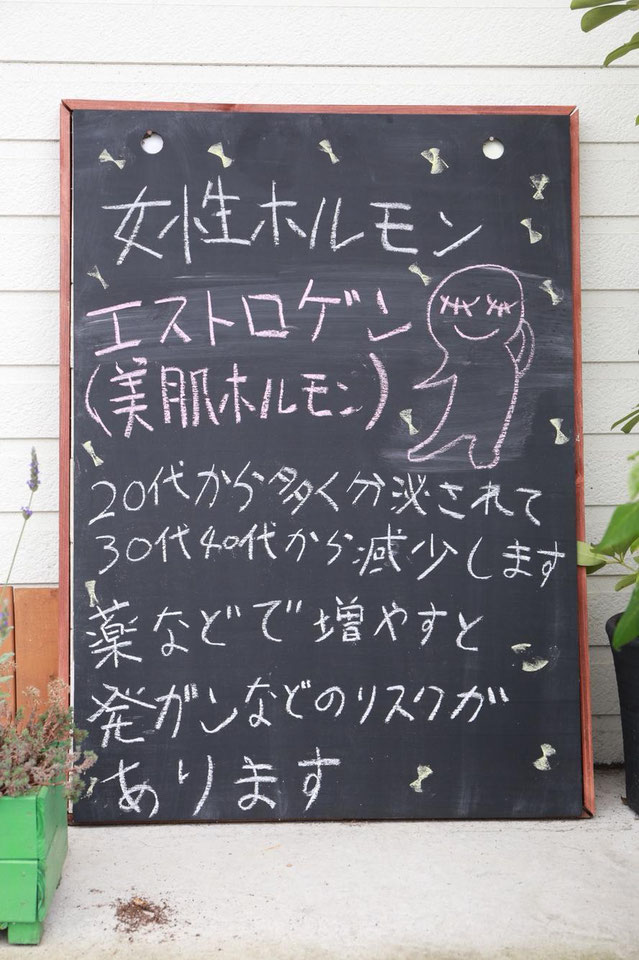 女性ホルモン
エストロゲン
(美肌ホルモン)
20代から多く分泌されて
30代40代から減少します
薬などで増やすと
発ガンなどのリスクが
あります